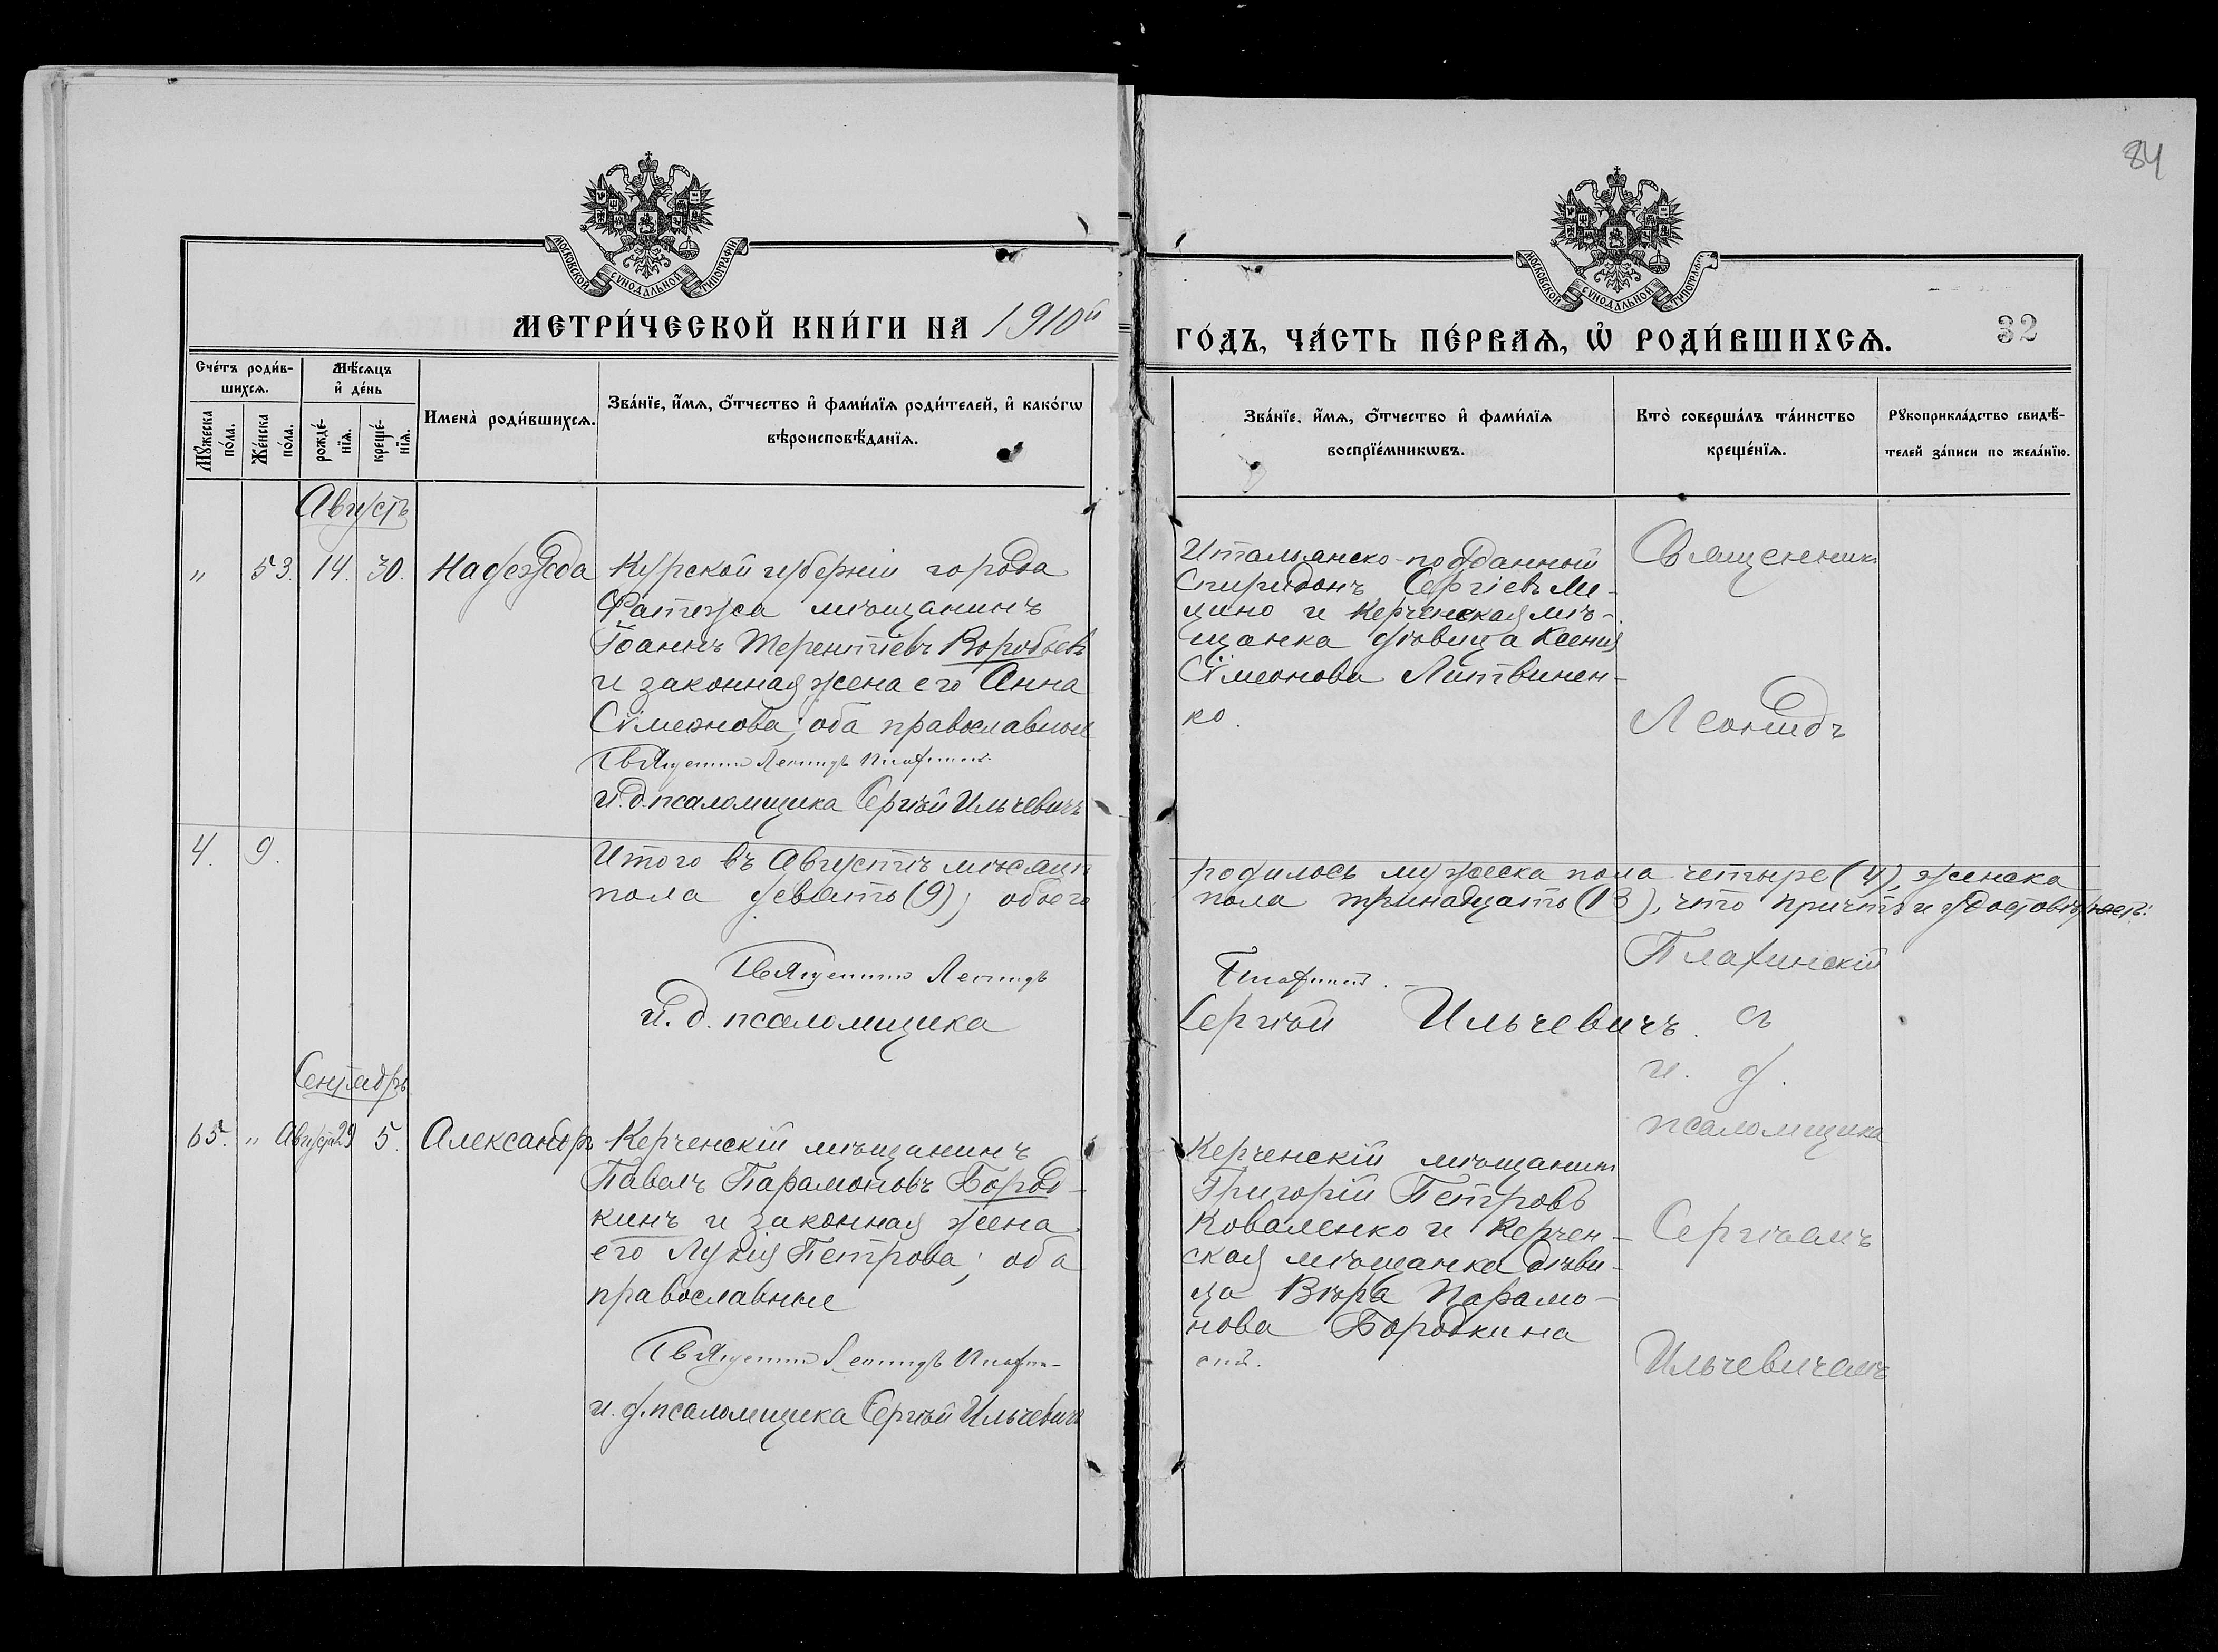 84
МОСКОВСКОЙ СѴНОДАЛЬНОЙ ТИПОГРАФІИ
МОСКОВСКОЙ СѴНОДАЛЬНОЙ ТИПОГРАФІИ
МЕТРИ́ЧЕСКОЙ КНИ́ГИ НА 1910й
ГО́ДЪ, ЧА́СТЬ ПЕ́РВАЯ, Ѽ РОДИ́ВШИХСЯ.
32
Сче́тъ роди́в-
шихся.
Мѣсяцъ
и҆ де́нь
Мꙋжеска по́ла.
Же́нска по́ла.
рожде́-нїя.
креще́-нїя.
Имена̀ роди́вшихся.
Зва́нїе, и҆́мя, ѻ҆́тчество и҆ фами́лїя роди́телей, и҆ како́гѡ
вѣроисповѣ́данїя.
Зва́нїе, и҆́мя, ѻ҆́тчество и҆ фами́лїя
воспрїе́мникѡвъ.
Кто̀ соверша́лъ та́инство
креще́нїя.
Рꙋкоприкла́дство свидѣ́-
телей за́писи по жела́нїю.
Августъ
" 53. 14. 30. Надежда
Курской губерніи города
Фатежа мѣщанинъ
Іоаннъ Терентіевъ Воробьевъ
и законная жена его Анна
Сѵмеонова; оба православные
Священникъ Леонидъ Плахинскій
и. д. псаломщика Сергѣй Ильчевичъ
Итальянско-подданный
Спиридонъ Сергіевъ Ме-
цино и Керченская мѣ-
щанка дѣвица Ксенія
Сѵмеонова Литвинен-
ко.
Священникъ
Леонидъ
4. 9.
Итого въ Августѣ мѣсяцѣ родилось мужеска пола четыре (4), женска
пола девять (9), обоего пола тринадцать (13), что причтъ и удостовѣряетъ:
Священникъ Леонидъ Плахинскій.
и. д. псаломщика Сергѣй Ильчевичъ.
Плахинскій
съ
и. д.
псаломщика
Сергѣемъ
Ильчевичемъ
Сентябрь
65. " Августа 29 5. Александръ
Керченскій мѣщанинъ
Павелъ Парамоновъ Бород-
кинъ и законная жена
его Лукія Петрова; оба
православные
Священникъ Леонидъ Плахин-
скій.
и. д. псаломщика Сергѣй Ильчевичъ
Керченскій мѣщанинъ
Григорій Петровъ
Коваленко и Керчен-
ская мѣщанка дѣви-
ца Вѣра Парамо-
нова Бородкина